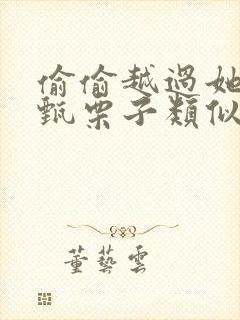 偷偷越過她
甄栗子類似
董藝雲